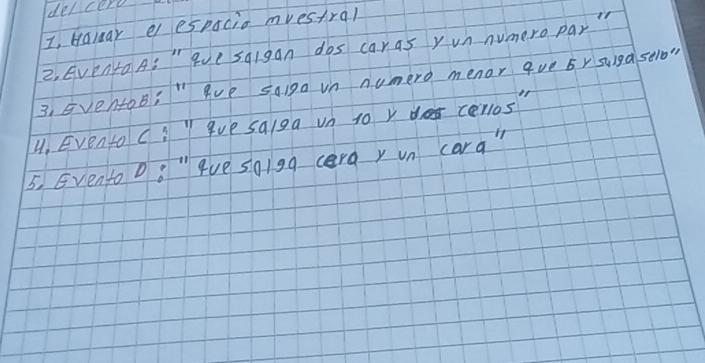 del cero
1. Hallar el espacio muestral
2. Evento A: "que salgan dos caras y un numero par"
3. Evento B: "que salga un numero menor que 5 y salga sello"
4. Evento C: "que salga un 10 y cellos"
5. Evento D: "que salga cera y un cara"